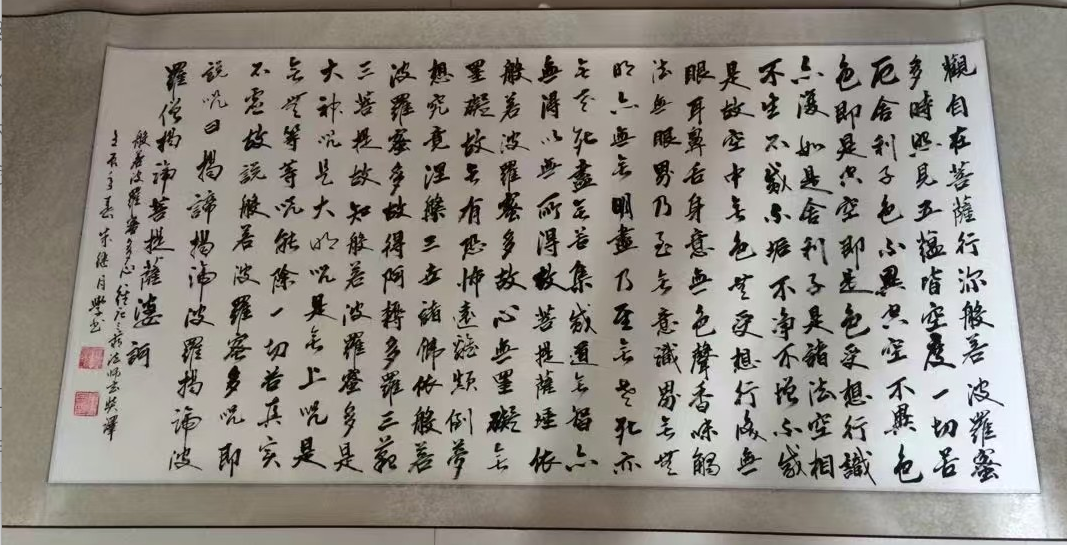 觀自在菩薩行深般若波羅蜜
多時照見五蘊皆空度一切苦
厄舍利子色不異空空不異色
色即是空空即是色受想行識
亦復如是舍利子是諸法空相
不生不滅不垢不淨不增不減
是故空中無色無受想行識無
眼耳鼻舌身意無色聲香味觸
法無眼界乃至無意識界無無
明亦無無明盡乃至無老死亦
無老死盡無苦集滅道無智亦
無得以無所得故菩提薩埵依
般若波羅蜜多故心無罣礙無
罣礙故無有恐怖遠離顛倒夢
想究竟涅槃三世諸佛依般若
波羅蜜多故得阿耨多羅三藐
三菩提故知般若波羅蜜多是
大神咒是大明咒是無上咒是
無無等等咒能除一切苦真實
不虛故說般若波羅蜜多咒即
說咒曰揭諦揭諦波羅揭諦波
羅僧揭諦菩提薩婆訶
般若波羅蜜多心經